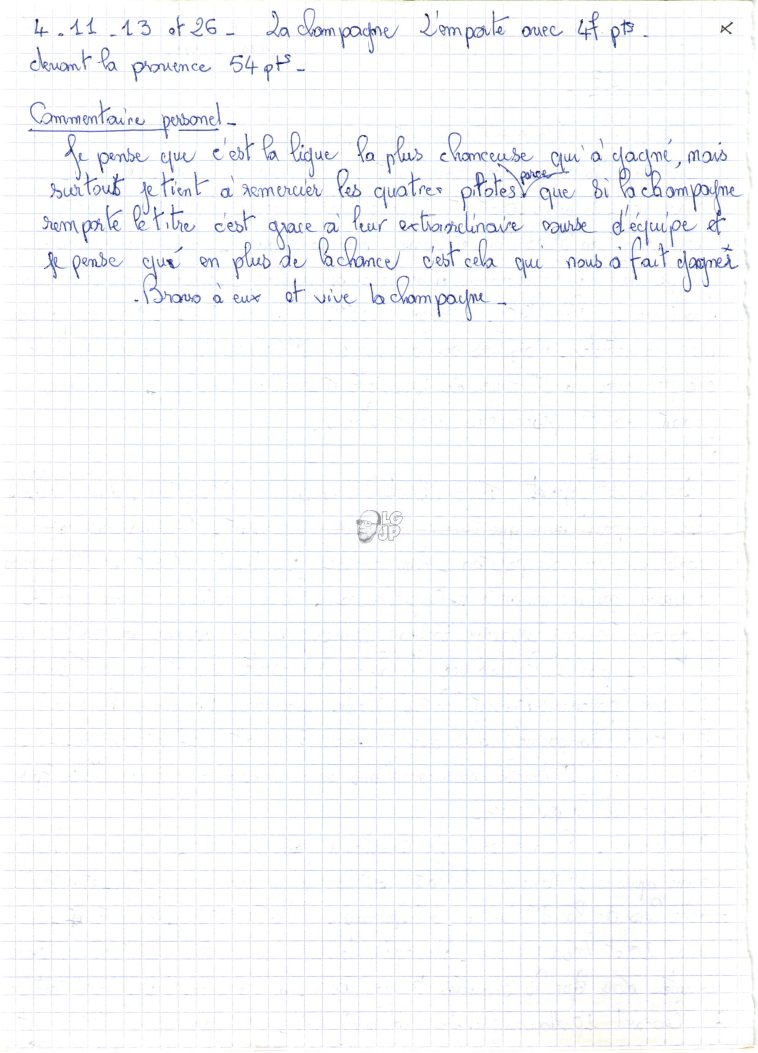 4 - 11 - 13 et 26 - La champagne l'emporte avec 47 pts.
devant la provence 54 pts -
Commentaire personel -
Je pense que c'est la ligue la plus chanceuse qui à gagné, mais
surtout je tient à remercier les quatre pilotes parce que si la champagne
remporte le titre c'est grace à leur extraordinaire course d'équipe et
je pense que en plus de la chance c'est cela qui nous à fait gagner
. Bravo à eux et vive la champagne -
LG
JP